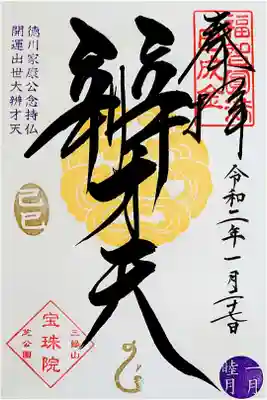 奉拝
令和二年一月二十七日
辨才天
徳川家康公念持仏
開運出世大辨才天
己巳
三緑山
宝珠院
芝公園
一月
睦月